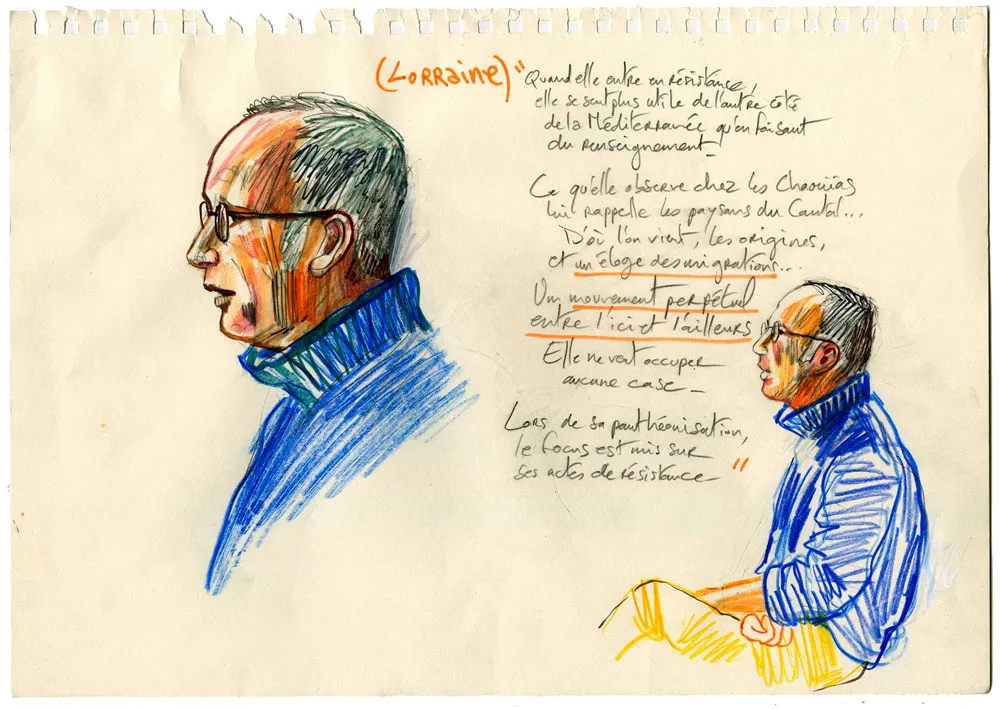 (Lorraine) " Quand elle entre en résistance,
elle se sent plus utile de l'autre côté
de la Méditerranée qu'en faisant
du renseignement_
Ce qu'elle observe chez les Chaouïas
lui rappelle les paysans du Cantal...
D'où l'on vient, les origines,
et un éloge des migrations...
Un mouvement perpétuel
entre l'ici et l'ailleurs
Elle ne veut occuper
aucune case_
Lors de sa panthéonisation,
le focus est mis sur
ses actes de résistance_ "